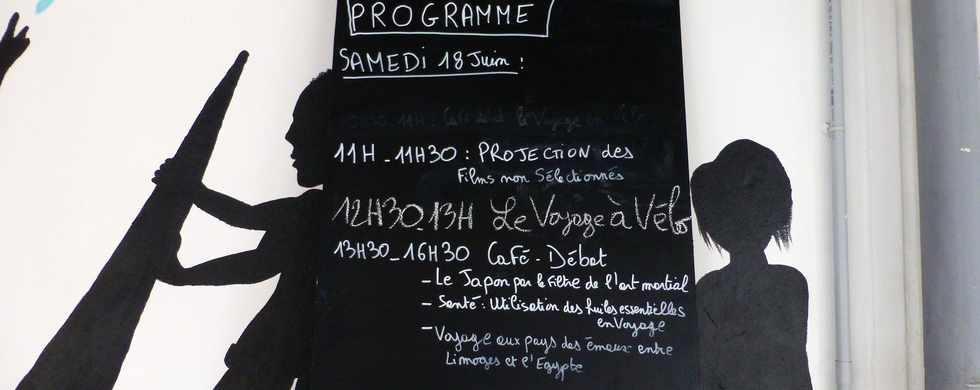 PROGRAMME
SAMEDI 18 Juin :
10H30_11H : Café le Voyage en Vélo
11H_11H30 : PROJECTION des
Films non Sélectionnés
12H30_13H Le Voyage à Vélo
13H30_16H30 Café - Débat
- Le Japon par le filtre de l'art martial
- Santé : Utilisation des huiles essentielles
en Voyage
- Voyage aux pays des émaux entre
Limoges et l'Egypte